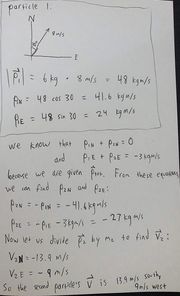 particle 1.
N
8 m/s
30
E
|P⃗₁| = 6 kg · 8 m/s = 48 kg m/s
P₁N = 48 cos 30 = 41.6 kg m/s
P₁E = 48 sin 30 = 24 kg m/s
we know that P₁N + P₂N = 0
and P₁E + P₂E = -3 kg m/s
because we are given P⃗ₜₒₜ. From these equations
we can find P₂N and P₂E:
P₂N = -P₁N = -41.6 kg m/s
P₂E = -P₁E - 3 kg m/s = -27 kg m/s
Now let us divide P⃗₂ by m₂ to find V⃗₂:
V₂N = -13.9 m/s
V₂E = -9 m/s
So the second particle's V⃗ is 13.9 m/s south,
9 m/s west